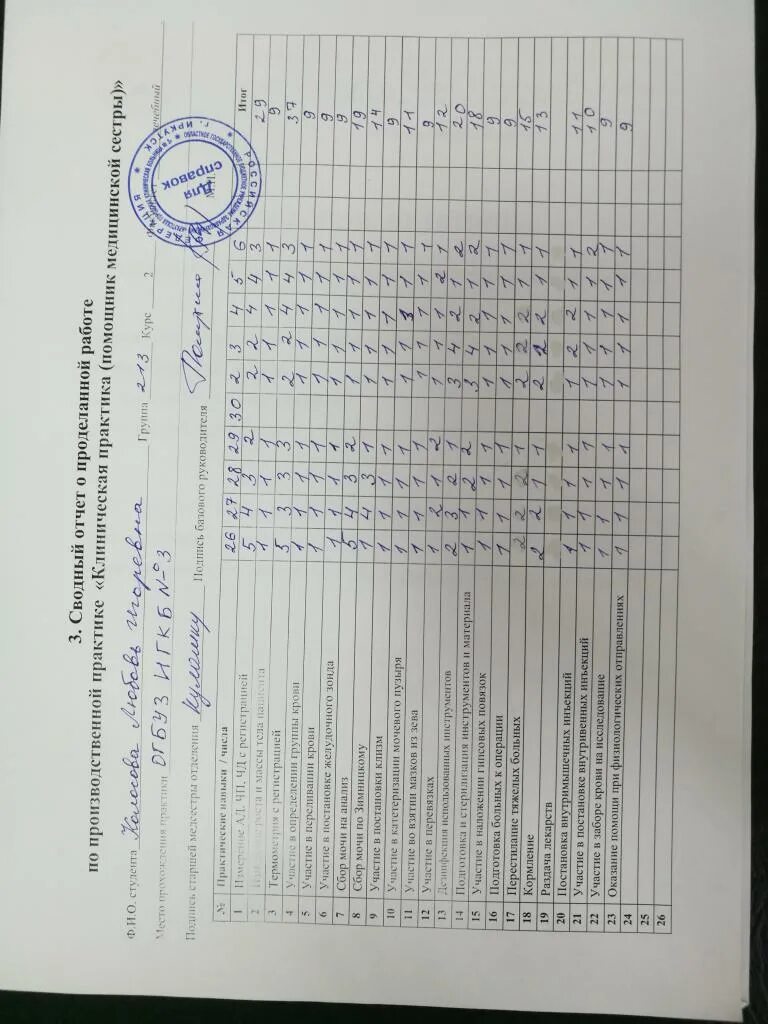 3. Сводный отчет о проделанной работе
по производственной практике «Клиническая практика (помощник медицинской сестры)»
Ф.И.О. студента Колосова Любовь Игоревна Группа 213 Курс 2 лечебный
Место прохождения практики ОГБУЗ ИГКБ №3
Подпись старшей медсестры отделения Подпись базового руководителя М.П.
Для справок
РОССИЙСКАЯ ФЕДЕРАЦИЯ г. ИРКУТСК
№ Практические навыки / числа 26 27 28 29 30 2 3 4 5 6 Итог
1 Измерение АД, ЧП, ЧД с регистрацией 5 4 3 2 2 2 4 4 3 29
2 Измерение роста и массы тела пациента 1 1 1 1 1 1 1 1 1 9
3 Термометрия с регистрацией 5 3 3 3 2 2 4 4 3 37
4 Участие в определении группы крови 1 1 1 1 1 1 1 1 1 9
5 Участие в переливании крови 1 1 1 1 1 1 1 1 1 9
6 Участие в постановке желудочного зонда 1 1 1 1 1 1 1 1 1 9
7 Сбор мочи на анализ 5 4 3 2 1 1 1 1 1 19
8 Сбор мочи по Зимницкому 1 4 3 1 1 1 1 1 1 14
9 Участие в постановки клизм 1 1 1 1 1 1 1 1 1 9
10 Участие в катетеризации мочевого пузыря 1 1 1 1 1 1 3 1 1 11
11 Участие во взятии мазков из зева 1 1 1 1 1 1 1 1 1 9
12 Участие в перевязках 1 2 1 2 1 1 1 2 1 12
13 Дезинфекция использованных инструментов 2 3 2 1 3 4 2 1 2 20
14 Подготовка и стерилизация инструментов и материала 1 1 2 2 3 4 2 1 2 18
15 Участие в наложении гипсовых повязок 1 1 1 1 1 1 1 1 1 9
16 Подготовка больных к операции 1 1 1 1 1 1 1 1 1 9
17 Перестилание тяжелых больных 2 2 2 1 2 2 2 1 1 15
18 Кормление 2 2 1 1 2 2 2 1 1 13
19 Раздача лекарств
20 Постановка внутримышечных инъекций 1 1 1 1 1 2 2 1 1 11
21 Участие в постановке внутривенных инъекций 1 1 1 1 1 1 1 1 2 10
22 Участие в заборе крови на исследование 1 1 1 1 1 1 1 1 1 9
23 Оказание помощи при физиологических отправлениях 1 1 1 1 1 1 1 1 1 9
24
25
26